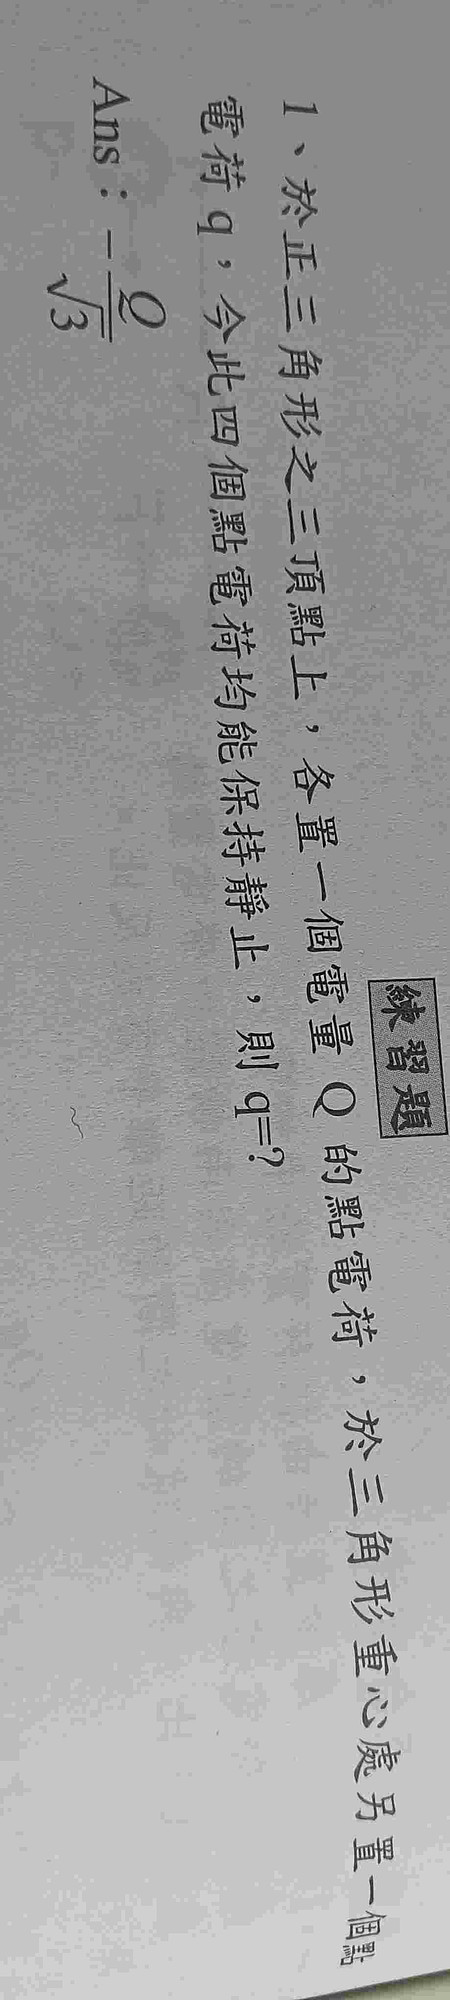 練習題
1、於正三角形之三頂點上，各置一個電量 Q 的點電荷，於三角形重心處另置一個點
電荷 q，今此四個點電荷均能保持靜止，則 q=?
Ans：-Q/√3